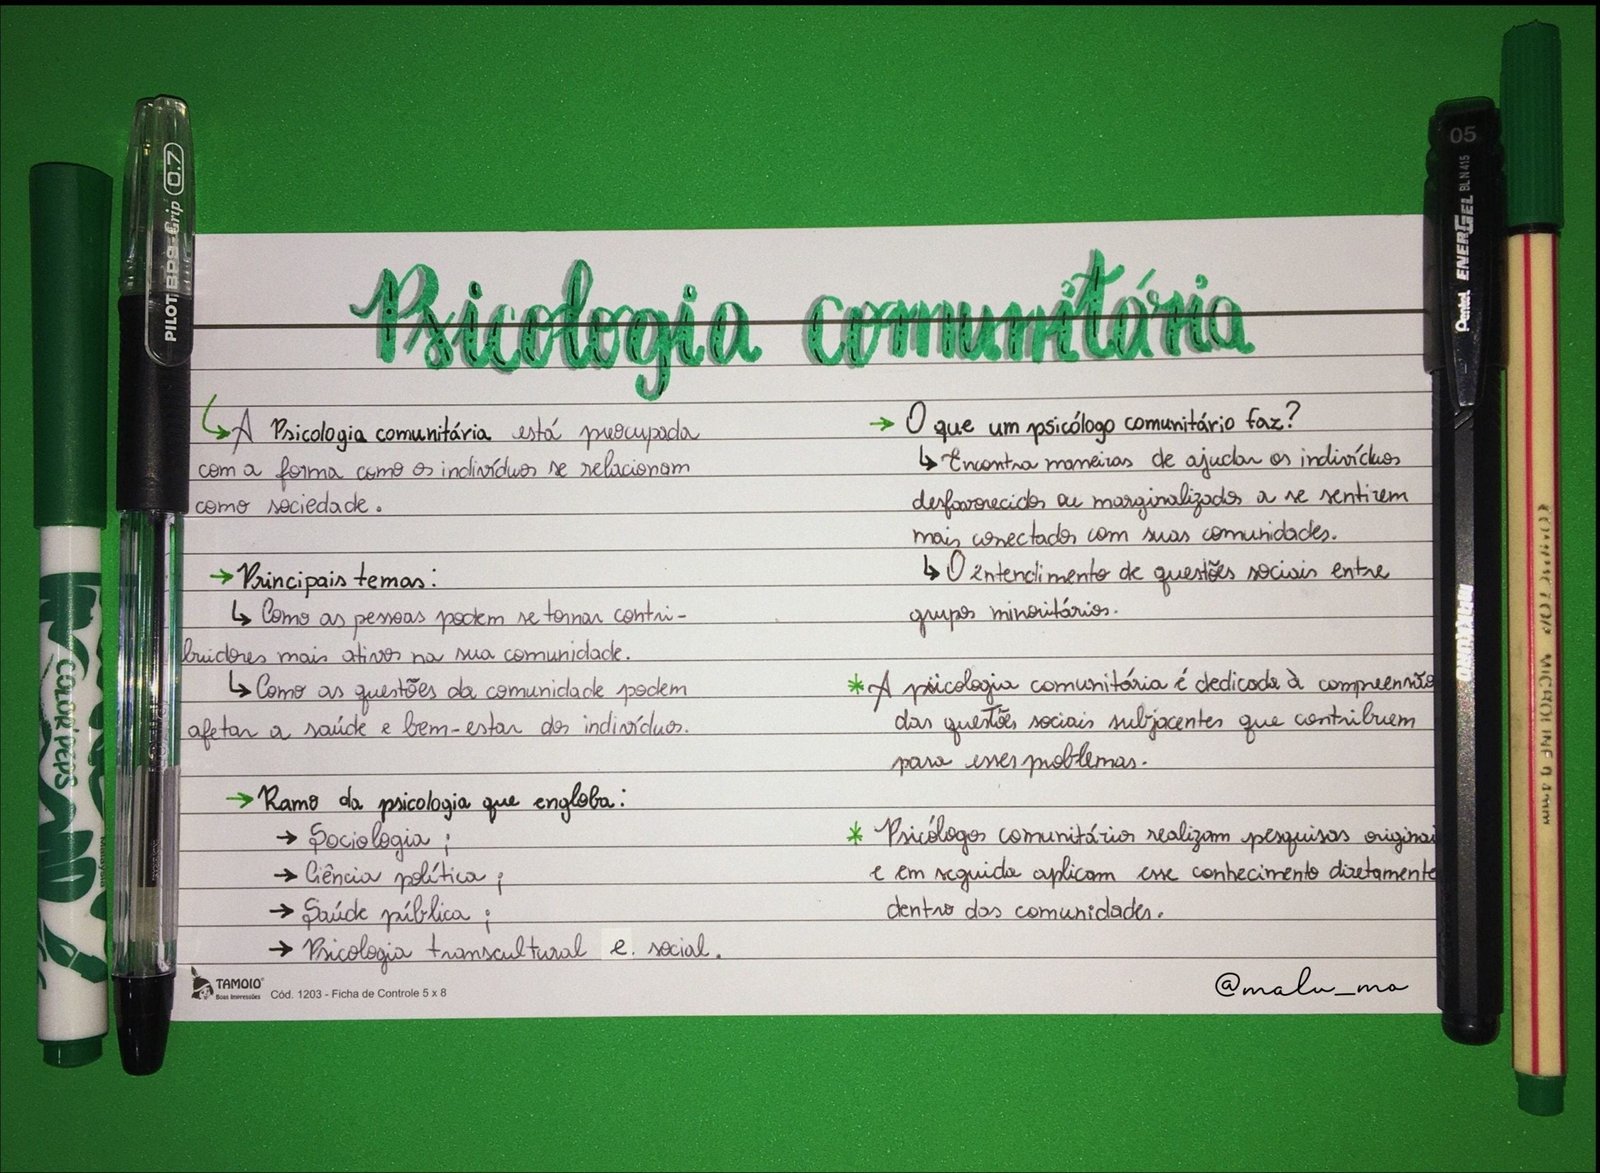 Psicologia comunitária
A Psicologia comunitária está preocupada
com a forma como os indivíduos se relacionam
como sociedade.
Principais temas:
Como as pessoas podem se tornar contri-
buidores mais ativos na sua comunidade.
Como as questões da comunidade podem
afetar a saúde e bem-estar dos indivíduos.
Ramo da psicologia que engloba:
Sociologia;
Ciência política;
Saúde pública;
Psicologia transcultural e. social.
O que um psicólogo comunitário faz?
Encontra maneiras de ajudar os indivíduos
desfavorecidos ou marginalizados a se sentirem
mais conectados com suas comunidades.
O entendimento de questões sociais entre
grupos minoritários.
* A psicologia comunitária é dedicada à compreensão
das questões sociais subjacentes que contribuem
para esses problemas.
* Psicólogos comunitários realizam pesquisas originai
e em seguida aplicam esse conhecimento diretamente
dentro das comunidades.
TAMOIO
Boas Impressões
Cód. 1203 - Ficha de Controle 5 x 8
@malu_mo
COLOR'PEPS
PILOT BPS-Grip 0.7
05
Pentel ENERGEL BLN415